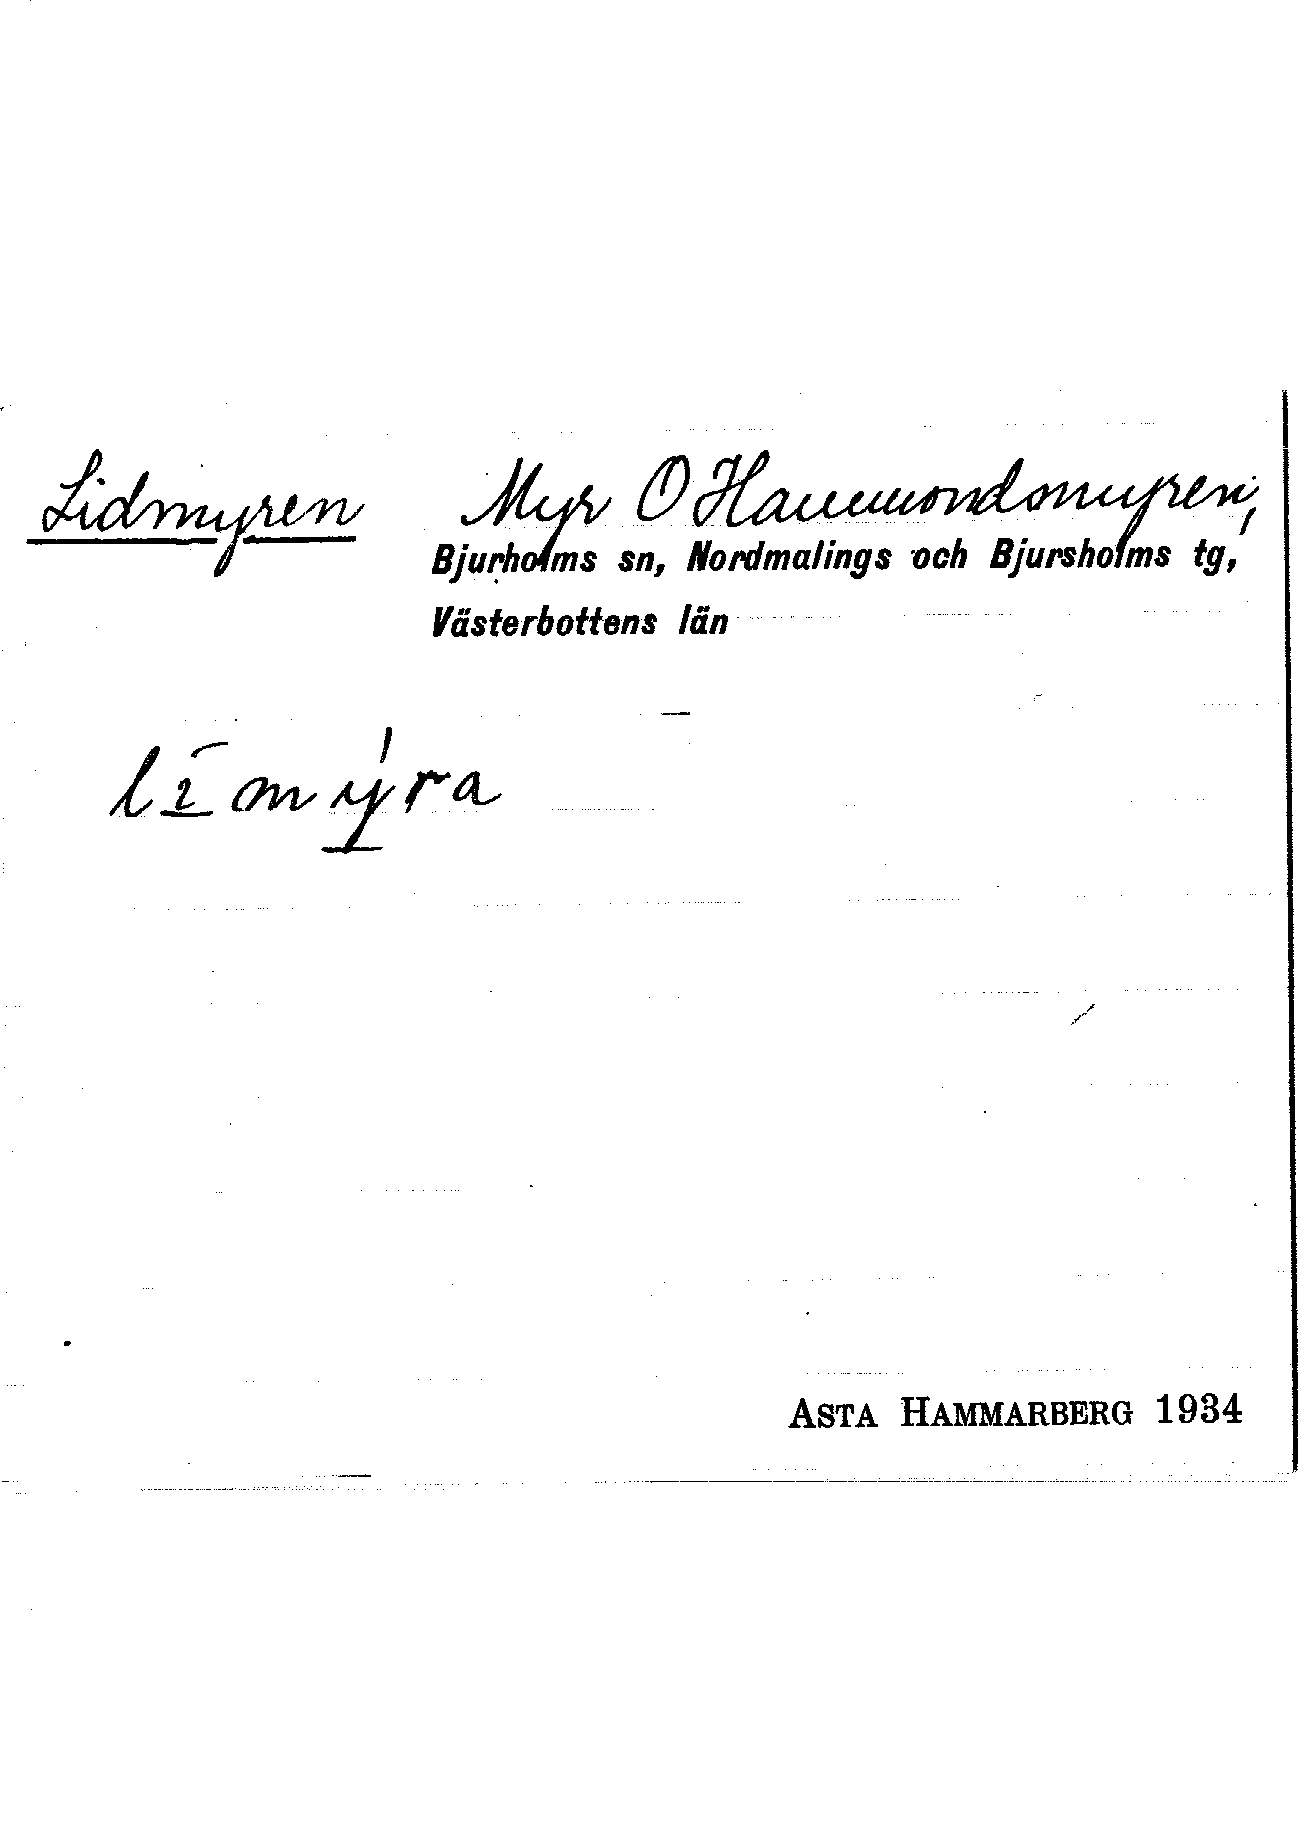 Lidmyren Myr O Hammondsmyren,
Bjurholms sn, Nordmalings och Bjursholms tg,
Västerbottens län
līmýra
ASTA HAMMARBERG 1934